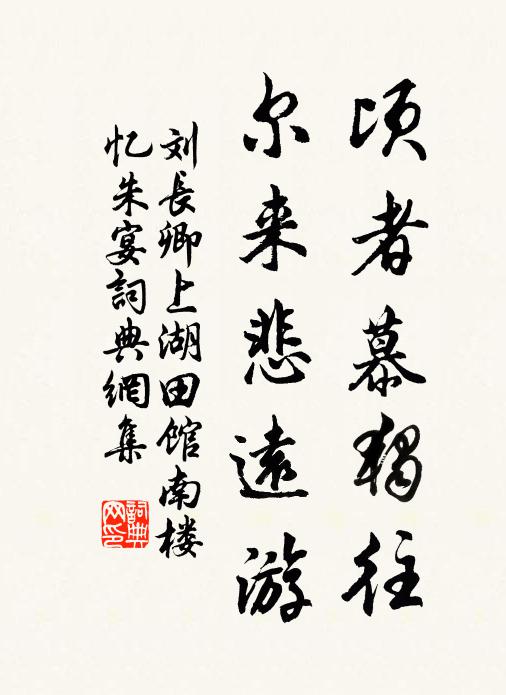 顷者慕独往
尔来悲远游
刘长卿上湖田馆南楼
忆朱宴词典网集
词典
网印